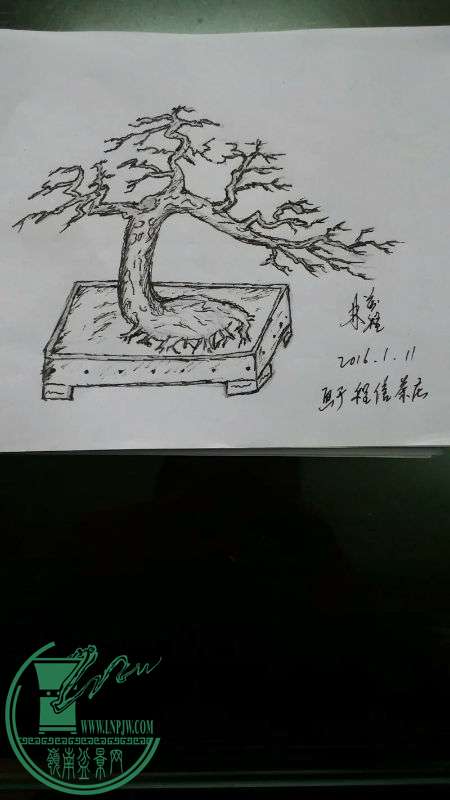 2016.1.11
画于程信茶店
WWW.LNPJW.COM
嶺南盆景网